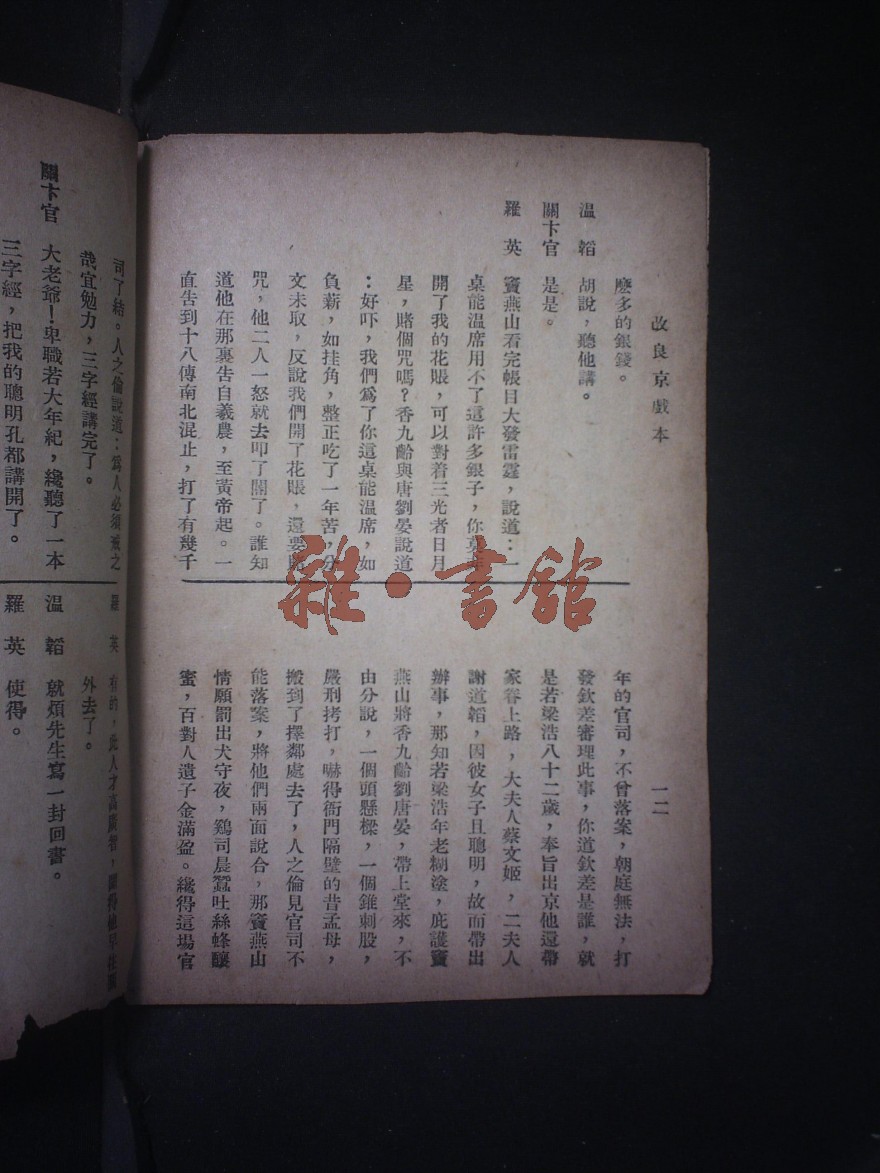 改良京戲本
一二
麽多的銀錢。
温 韜 胡說，聽他講。
關卞官 是是。
羅 英 竇燕山看完帳目大發雷霆，說道：一
桌能溫席用不了這許多銀子，你
開了我的花賬，可以對着三光者日月
星，賭個咒嗎？香九齡與唐劉晏說道
：好吓，我們爲了你這桌能溫席，如
負薪，如挂角，整正吃了一年苦，分
文未取，反說我們開了花賬，還要賭
咒，他二人一怒就去叩了閽了。誰知
道他在那裏告自羲農，至黃帝起。一
直告到十八傳南北混止，打了有幾千
年的官司，不曾落案，朝庭無法，打
發欽差審理此事，你道欽差是誰，就
是若梁浩八十二歲，奉旨出京他還帶
家眷上路，大夫人蔡文姬，二夫人
謝道韜，因彼女子且聰明，故而帶出
辦事，那知若梁浩年老糊塗，庇護竇
燕山將香九齡劉唐晏，帶上堂來，不
由分說，一個頭懸樑，一個錐刺股，
嚴刑拷打，嚇得衙門隔壁的昔孟母，
搬到了擇鄰處去了，人之倫見官司不
能落案，將他們兩面說合，那竇燕山
情願罰出犬守夜，鷄司晨蠶吐絲蜂釀
蜜，百對人遺子金滿盈。纔得這場官
司了結。人之倫說道：爲人必須戒之
哉宜勉力，三字經講完了。
關卞官 大老爺！卑職若大年紀，纔聽了一本
三字經，把我的聰明孔都講開了。
羅 英 有的，此人才高廣智，
外去了。
温 韜 就煩先生寫一封回書。
羅 英 使得。
雜·書館